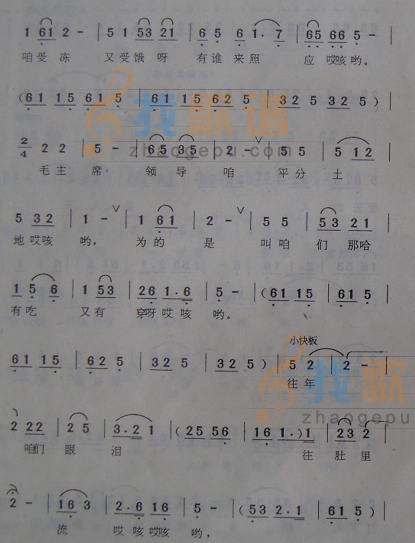 1 61 2 - | 5 1 53 21 | 65 6 1·7 | 65 66 5 - |
咱受冻 又受饿呀 有谁来照 应哎咳哟。
(61 15 61 5 | 61 15 62 5 | 32 5 32 5)
2/4 2 2 | 5 - | 65 35 | 2 - ∨ | 5 5 | 5 12 |
毛主席 领导咱 平分土
5 32 | 1 - ∨ | 1 61 | 2 - ∨ | 5 5 | 53 21 |
地哎咳 哟, 为的是 叫咱们那哈
15 6 | 1 53 | 26 1·6 | 5 - | (61 15 | 61 5 |
有吃 又有 穿呀哎咳哟。
61 15 | 62 5 | 32 5 | 32 5) | 5 2 | 2 - |
小快板
往年
2 22 | 2 5 | 3·2 1 | (25 56 | 16 1·) 1 | 23 2 |
咱们眼泪 往肚里
2 - | 16 3 | 2·6 16 | 5 - | (53 2·1 | 61 5 |
流 哎咳哎咳 哟,
找歌谱
zhaogepu.com
找歌
zhaogepu